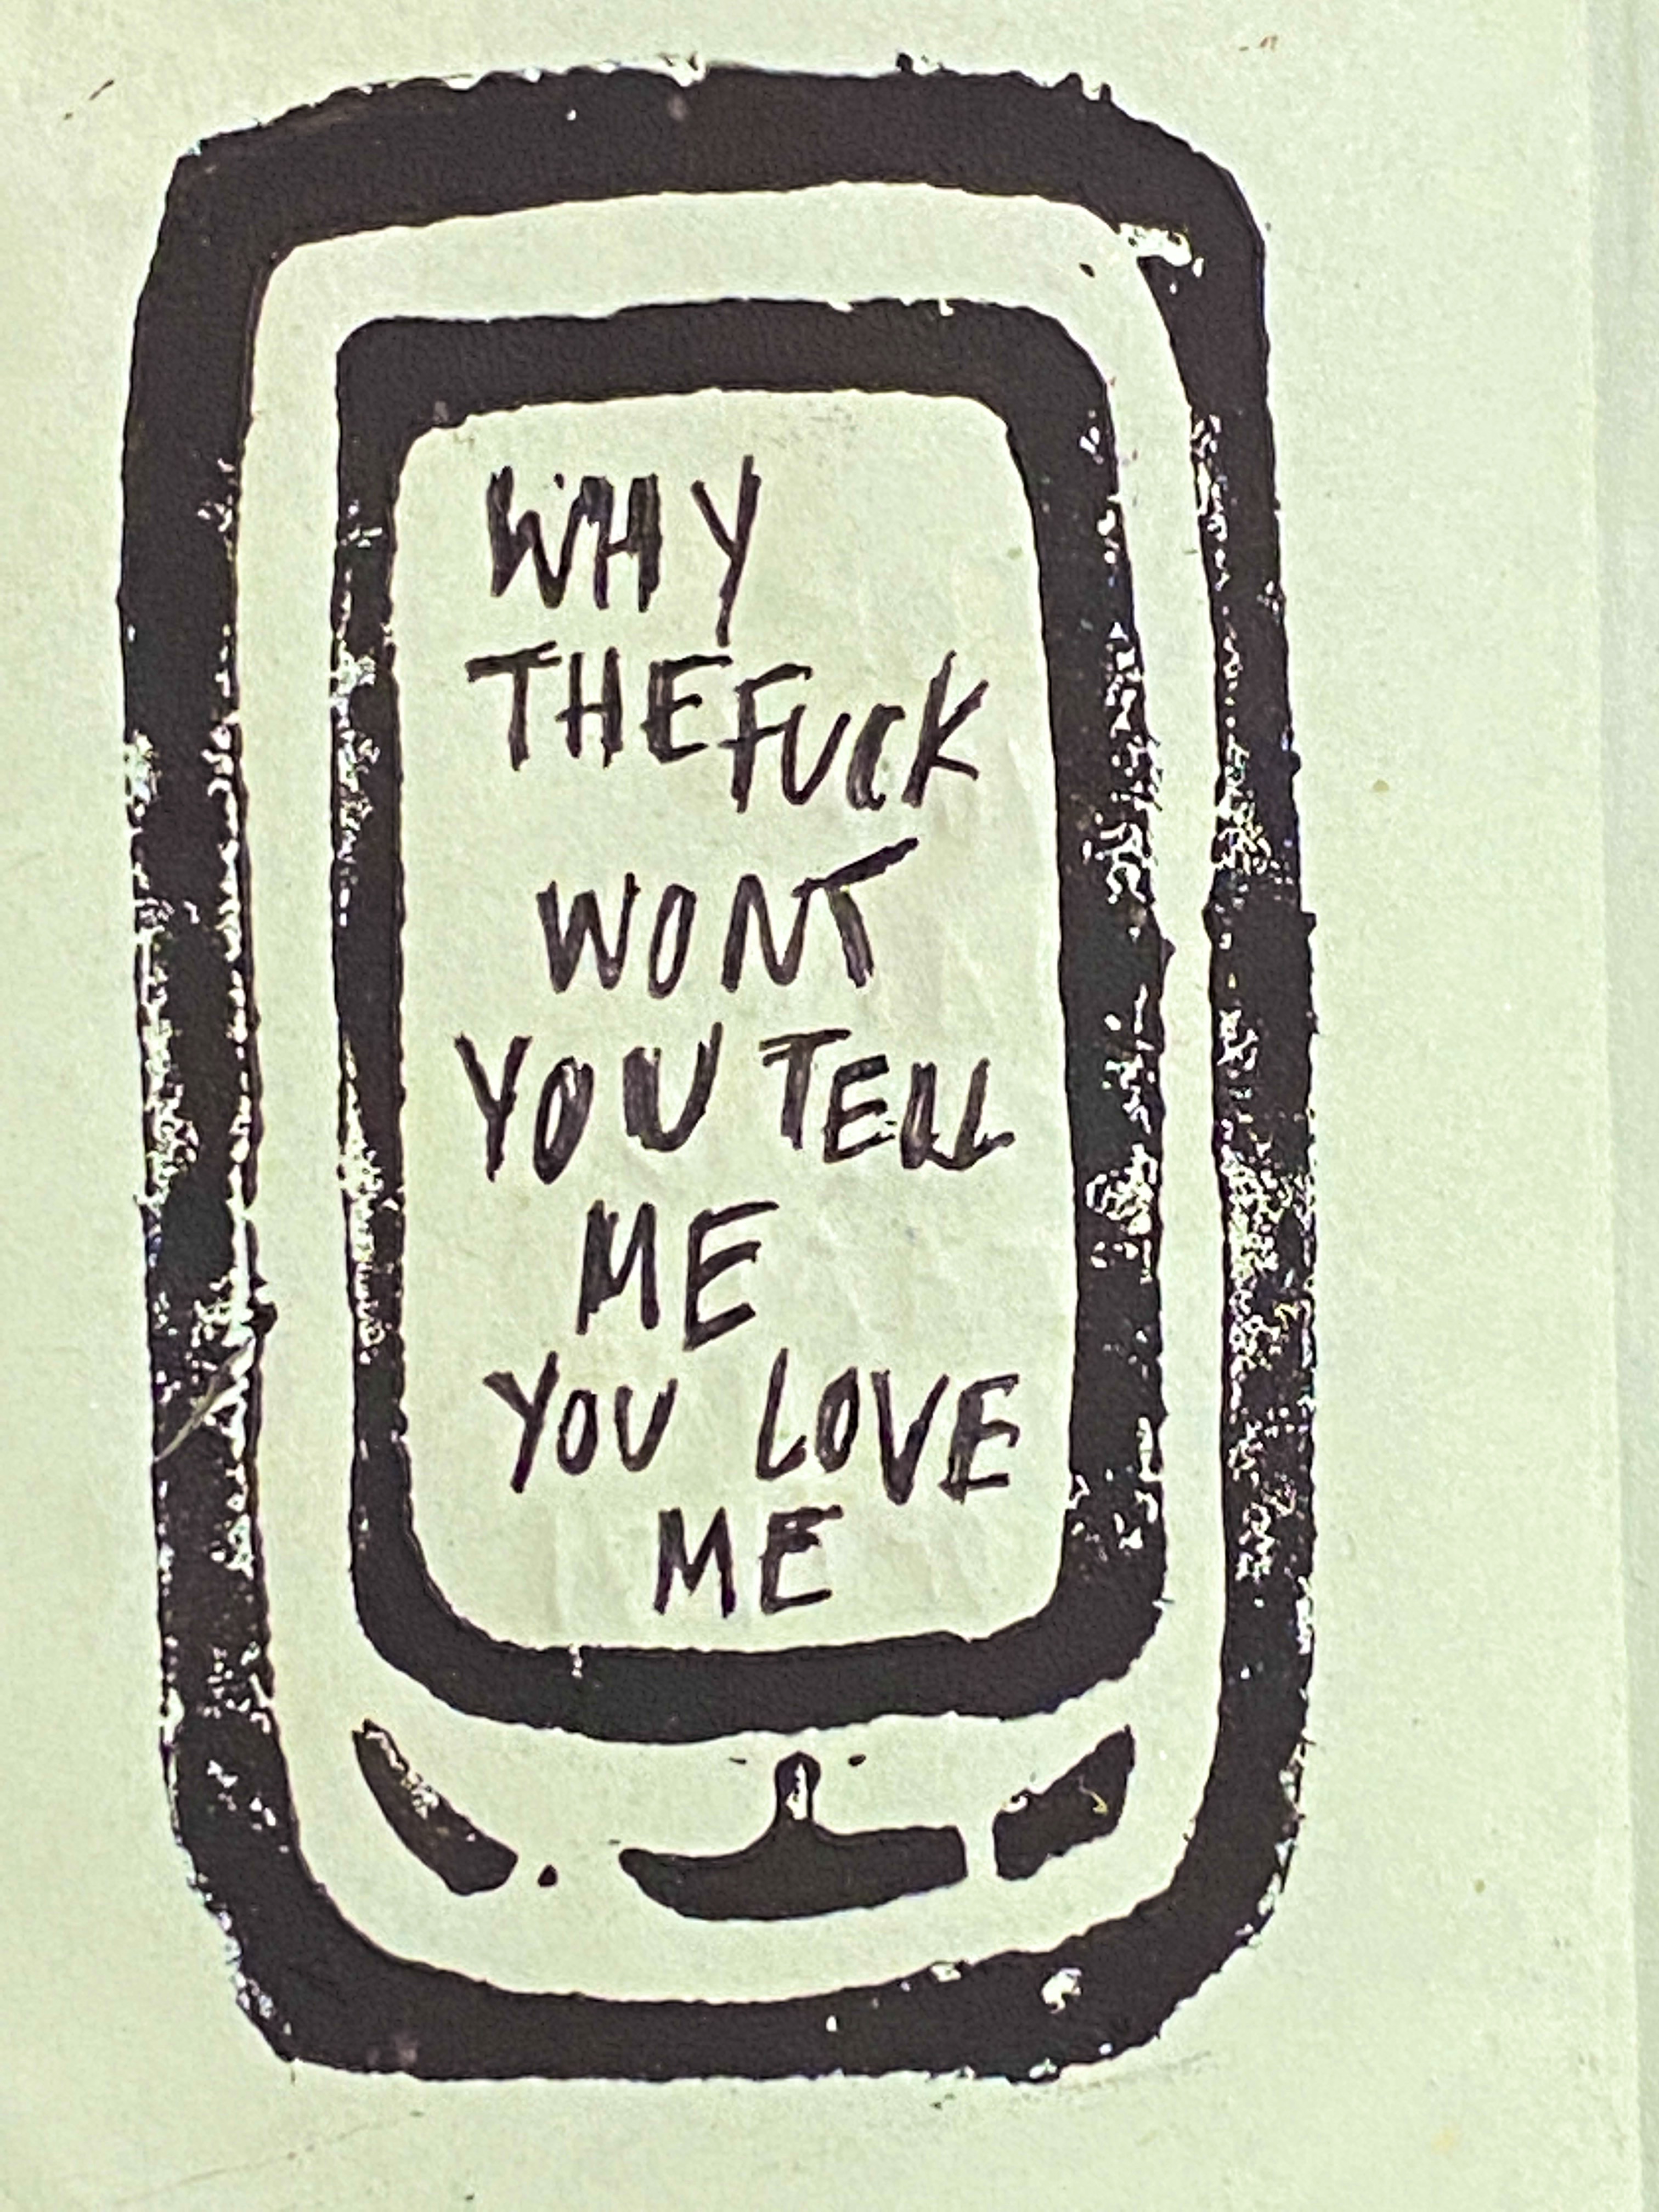 WHY
THE FUCK
WONT
YOU TELL
ME
YOU LOVE
ME